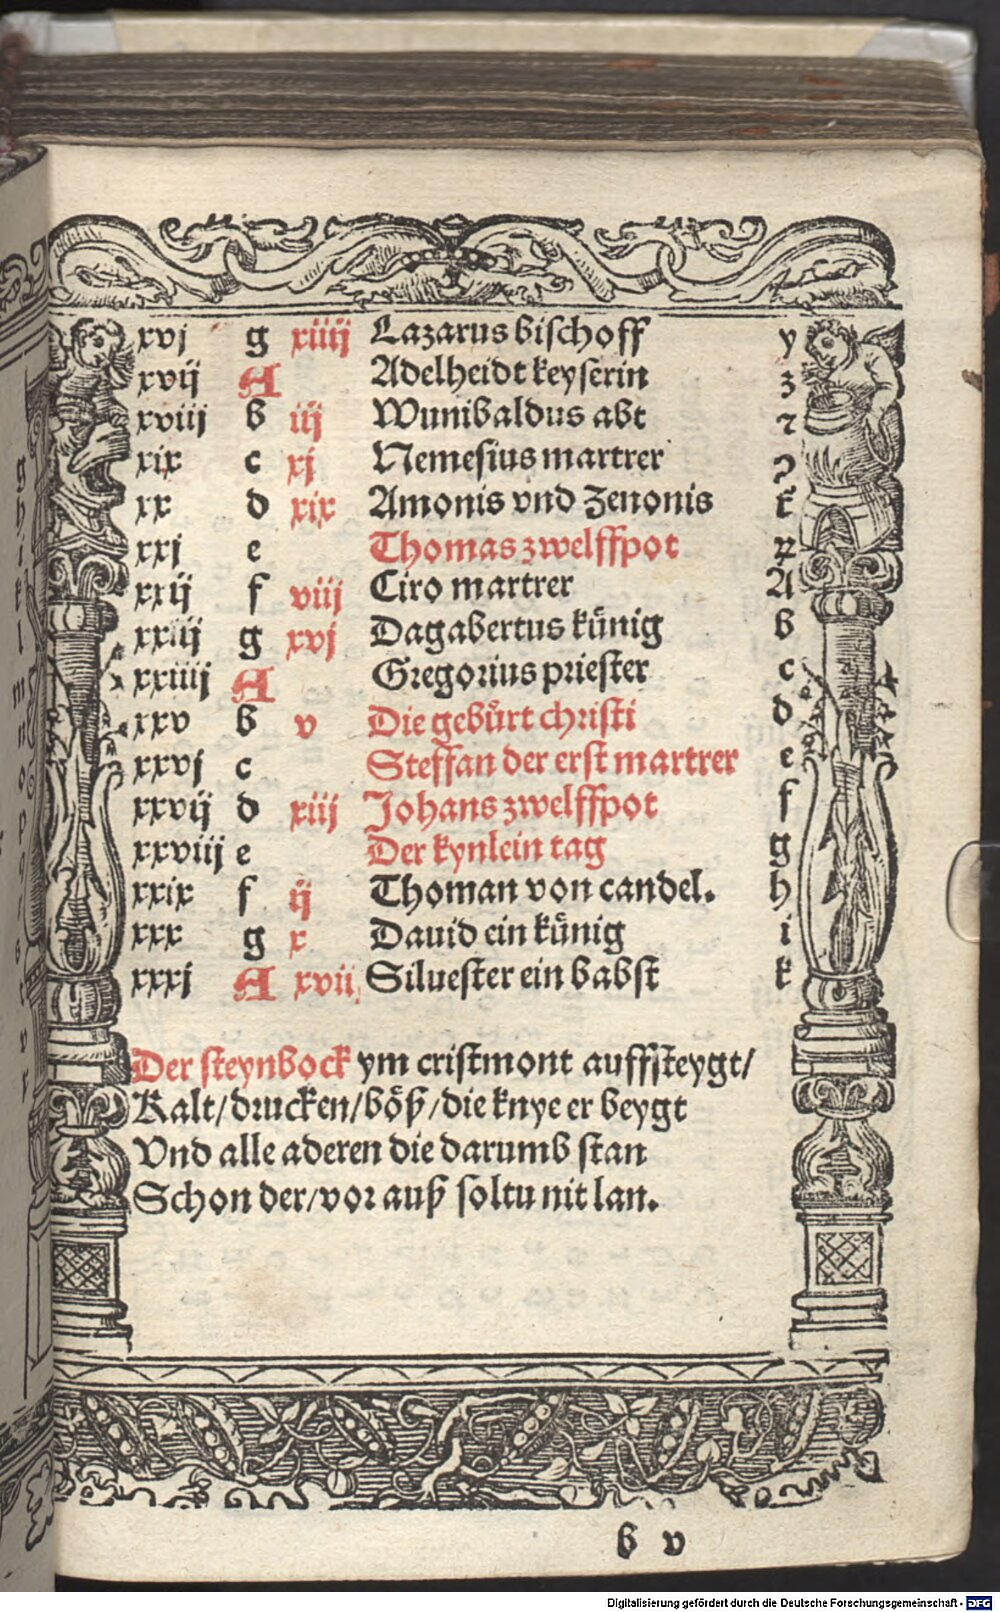 xvj g xiiij Lazarus bischoff y
xvij A Adelheidt keyserin z
xviij b iij Wunibaldus abt ⁊
xix c xj Nemesius martrer ꝯ
xx d xix Amonis vnd Zenonis
xxj e Thomas zwelffpot
xxij f viij Ciro martrer A
xxiij g xvj Dagabertus künig b
xxiiij A Gregorius priester c
xxv b v Die gebürt christi d
xxvj c Steffan der erst martrer e
xxvij d xiij Johans zwelffpot f
xxviij e Der kynlein tag g
xxix f ij Thoman von candel. h
xxx g x Dauid ein künig i
xxxj A xvij Siluester ein babst k
Der steynbock ym cristmont auffsteygt/
Kalt/drucken/böß/die knye er beygt
Vnd alle aderen die darumb stan
Schon der/vor auß soltu nit lan.
b v
Digitalisierung gefördert durch die Deutsche Forschungsgemeinschaft - DFG